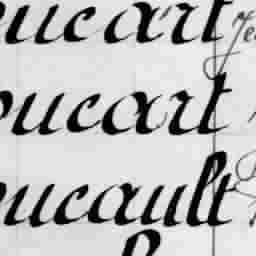 oucart
oucart
oucault